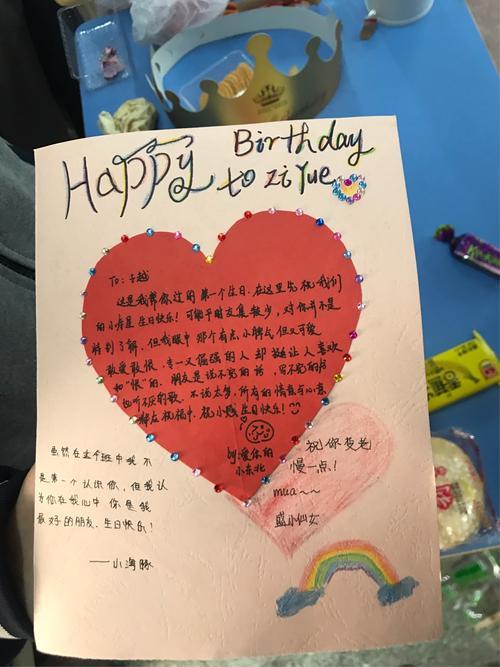 Happy Birthday
to ziYue
To: 子越
这是我帮你过的第一个生日,在这里先祝我们
的小寿星生日快乐!可能平时友集较少,对你并不是
特别了解,但我眼中那个有点小脾气但又可爱
敢爱敢恨,专一又倔强的人却挺让人喜欢
和"恨"的.朋友是说不完的话,写不完的
也听不厌的歌.不说太多,所有的情意与心意
都在祝福中,祝小贱生日快乐!
by:爱你的
小东北
虽然在这个班中我不
是第一个认识你,但我认
为你在我心中你是我
最好的朋友,生日快乐!
——小海豚
祝你变老
慢一点!
mua~~
盛小仙女